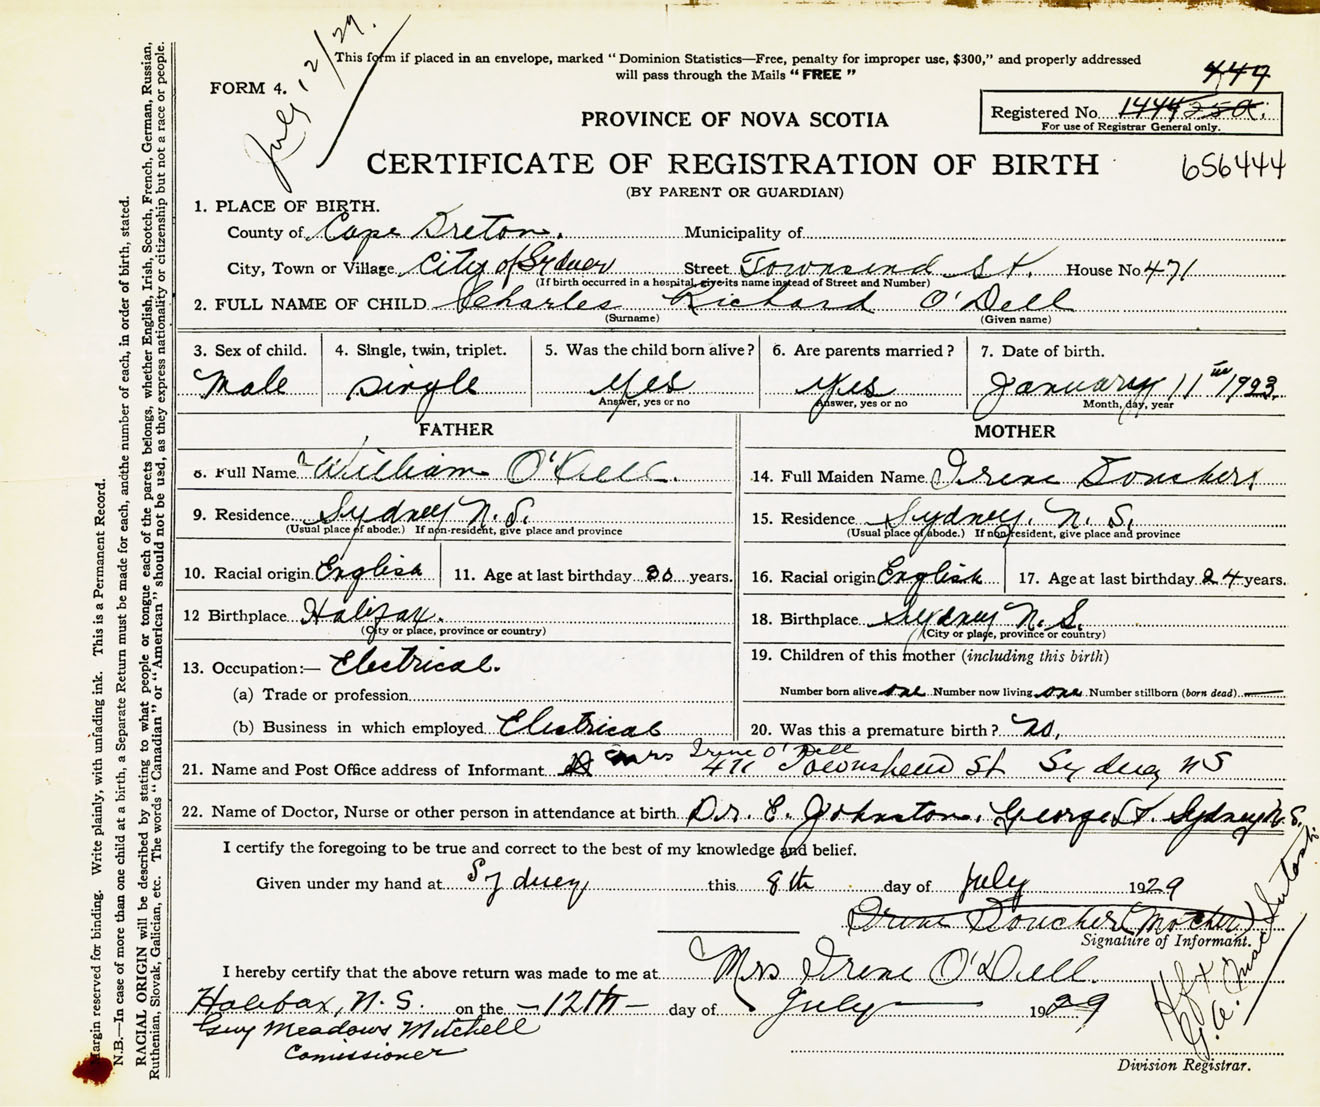 July 12/29.
This form if placed in an envelope, marked "Dominion Statistics—Free, penalty for improper use, $300," and properly addressed
will pass through the Mails "FREE"
FORM 4.
449
PROVINCE OF NOVA SCOTIA
Registered No. 1444
For use of Registrar General only.
CERTIFICATE OF REGISTRATION OF BIRTH
656444
(BY PARENT OR GUARDIAN)
1. PLACE OF BIRTH.
County of Cape Breton. Municipality of
City, Town or Village City of Sydney Street Townsend St. House No 471
(If birth occurred in a hospital, give its name instead of Street and Number)
2. FULL NAME OF CHILD Charles Richard O'Dell
(Surname) (Given name)
3. Sex of child. 4. Single, twin, triplet. 5. Was the child born alive? 6. Are parents married? 7. Date of birth.
Male single yes yes January 11th 1923.
Answer, yes or no Answer, yes or no Month, day, year
FATHER MOTHER
8. Full Name William O'Dell. 14. Full Maiden Name Irene Bouchers
9. Residence Sydney N.S. 15. Residence Sydney. N.S.
(Usual place of abode.) If non-resident, give place and province (Usual place of abode.) If non-resident, give place and province
10. Racial origin English 11. Age at last birthday 30 years. 16. Racial origin English 17. Age at last birthday 24 years.
12 Birthplace Halifax. 18. Birthplace Sydney N.S.
(City or place, province or country) (City or place, province or country)
13. Occupation:— Electrical. 19. Children of this mother (including this birth)
(a) Trade or profession Number born alive one Number now living one Number stillborn (born dead) —
(b) Business in which employed Electrical 20. Was this a premature birth? No,
Mrs Irene O'Dell
21. Name and Post Office address of Informant 471 Townshend St Sydney NS
22. Name of Doctor, Nurse or other person in attendance at birth Dr. E. Johnston. George St. Sydney N.S.
I certify the foregoing to be true and correct to the best of my knowledge and belief.
Given under my hand at Sydney this 8th day of July 1929
Irene Boucher (Mother)
Signature of Informant.
I hereby certify that the above return was made to me at Mrs Irene O'Dell.
Halifax, N.S. on the —12th— day of July 1929
Guy Meadows Mitchell
Comissioner
Hfx
Division Registrar.
Margin reserved for binding. Write plainly, with unfading ink. This is a Permanent Record.
N.B.—In case of more than one child at a birth, a Separate Return must be made for each, and the number of each, in order of birth, stated.
RACIAL ORIGIN will be described by stating to what people or tongue each of the parets belongs, whether English, Irish, Scotch, French, German, Russian,
Ruthenian, Slovak, Galician, etc. The words "Canadian" or "American" should not be used, as they express nationality or citizenship but not a race or people.